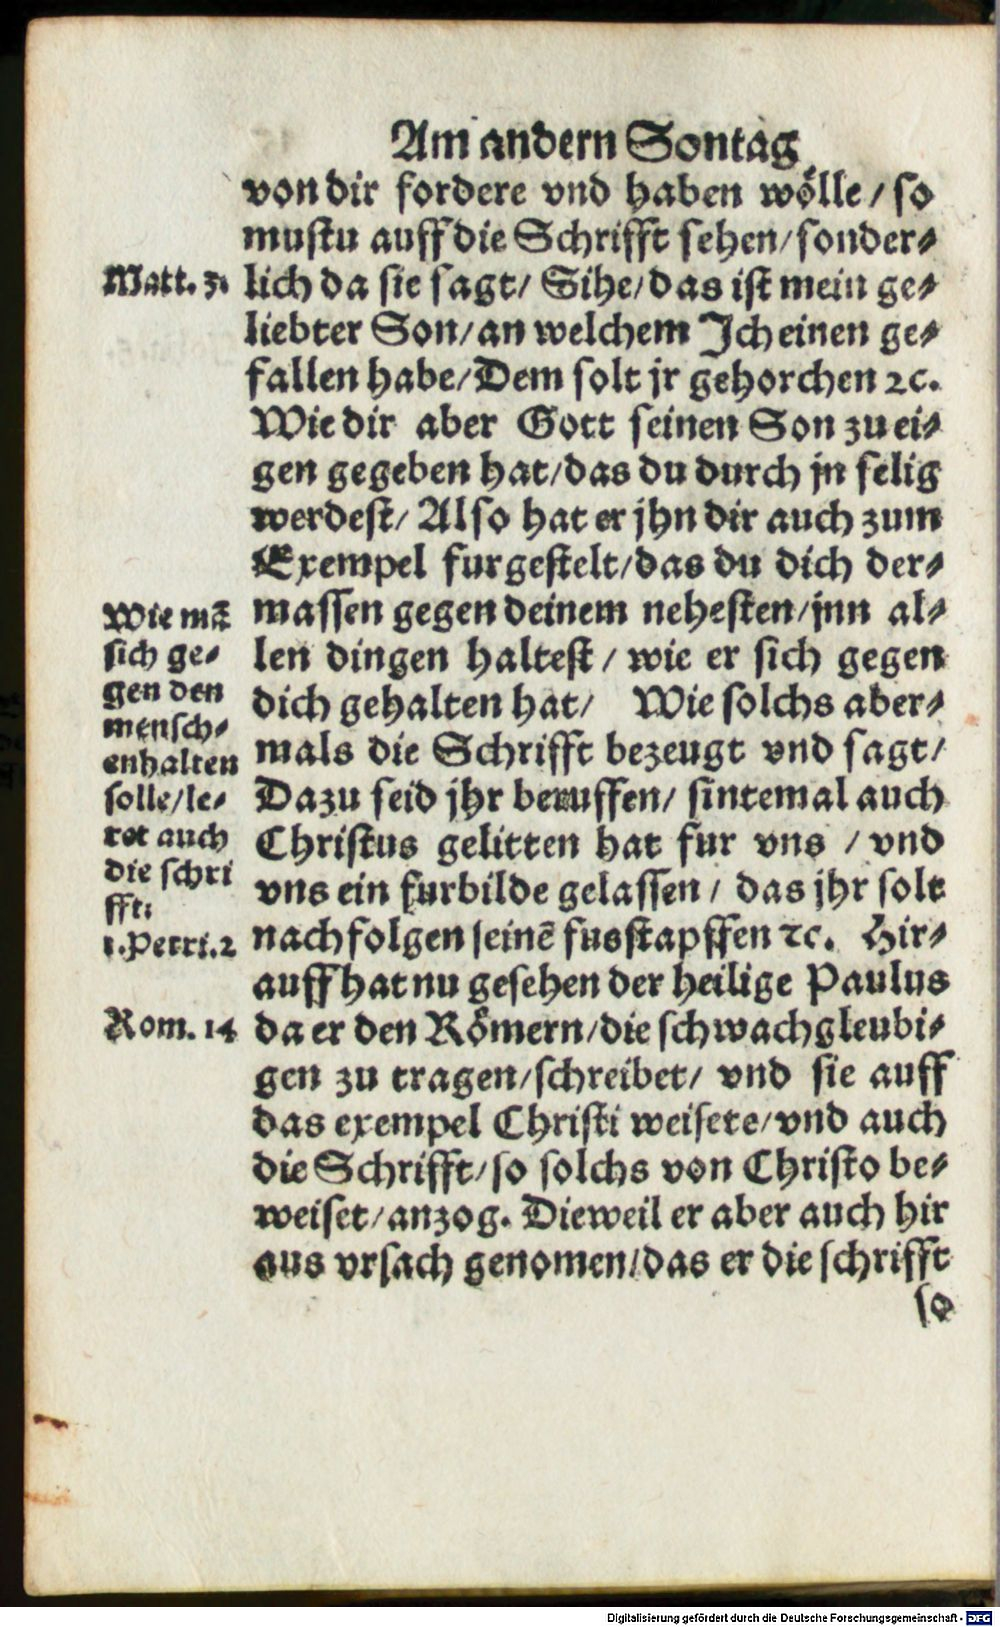 Am andern Sontag
von dir fordere vnd haben wölle / so
mustu auff die Schrifft sehen / sonder-
Matt. 3.
lich da sie sagt / Sihe / das ist mein ge-
liebter Son / an welchem Ich einen ge-
fallen habe / Dem solt jr gehorchen ꝛc.
Wie dir aber Gott seinen Son zu ei-
gen gegeben hat / das du durch jn selig
werdest / Also hat er jhn dir auch zum
Exempel furgestelt / das du dich der-
massen gegen deinem nehesten / jnn al-
len dingen haltest / wie er sich gegen
dich gehalten hat / Wie solchs aber-
mals die Schrifft bezeugt vnd sagt /
Dazu seid jhr beruffen / sintemal auch
Christus gelitten hat fur vns / vnd
vns ein furbilde gelassen / das jhr solt
nachfolgen seinē fusstapffen ꝛc. Hir-
auff hat nu gesehen der heilige Paulus
da er den Römern / die schwachgleubi-
gen zu tragen / schreibet / vnd sie auff
das exempel Christi weisete / vnd auch
die Schrifft / so solchs von Christo be-
weiset / anzog. Dieweil er aber auch hir
aus vrsach genomen / das er die schrifft
so
Wie mā
sich ge-
gen den
mensch-
en halten
solle / le-
ret auch
die schri
fft.
1. Petri. 2
Rom. 14
Digitalisierung gefördert durch die Deutsche Forschungsgemeinschaft - DFG